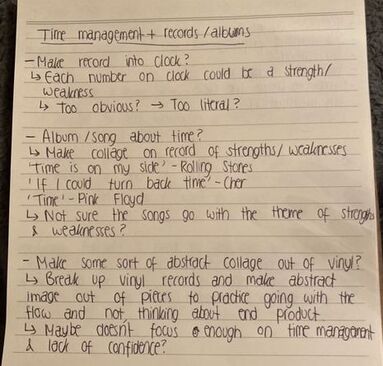 Time management + records/albums
- Make record into clock?
↳ Each number on clock could be a strength/
weakness
↳ Too obvious? → Too literal?
- Album/song about time?
↳ Make collage on record of strengths/weaknesses
'Time is on my side' - Rolling Stones
'If I could turn back time' - Cher
'Time' - Pink Floyd
↳ Not sure the songs go with the theme of strengths
& weaknesses?
- Make some sort of abstract collage out of vinyl?
↳ Break up vinyl records and make abstract
image out of pieces to practice going with the
flow and not thinking about end product.
↳ Maybe doesn't focus enough on time management
& lack of confidence?